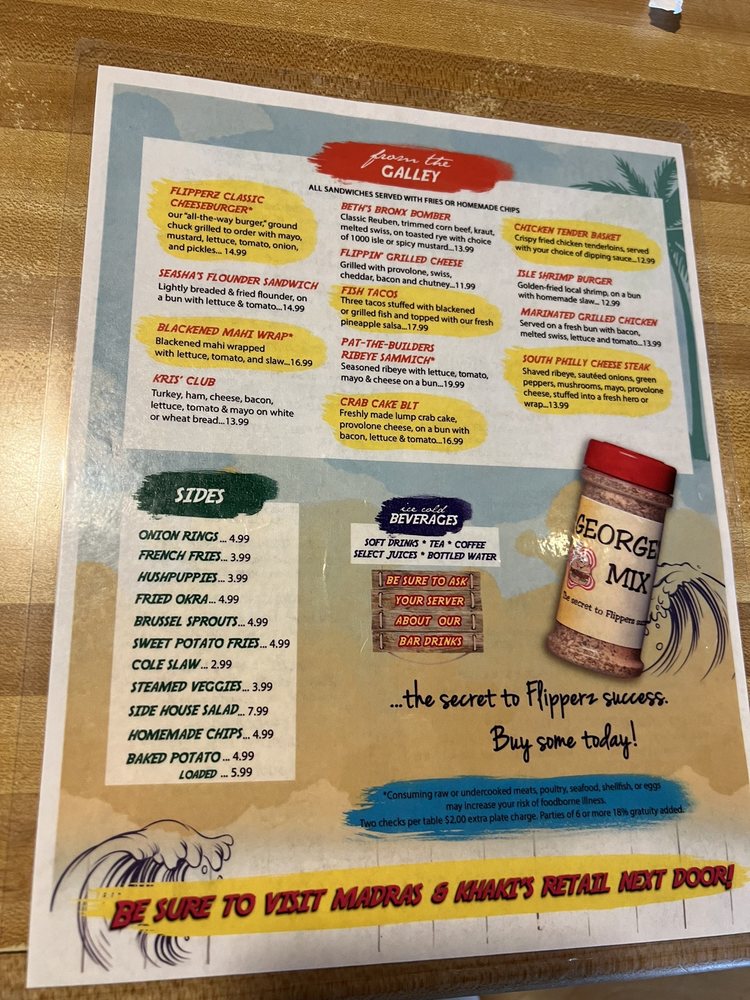 from the
GALLEY
ALL SANDWICHES SERVED WITH FRIES OR HOMEMADE CHIPS
FLIPPERZ CLASSIC
CHEESEBURGER*
our "all-the-way burger," ground
chuck grilled to order with mayo,
mustard, lettuce, tomato, onion,
and pickles... 14.99
SEASHA'S FLOUNDER SANDWICH
Lightly breaded & fried flounder, on
a bun with lettuce & tomato...14.99
BLACKENED MAHI WRAP*
Blackened mahi wrapped
with lettuce, tomato, and slaw...16.99
KRIS' CLUB
Turkey, ham, cheese, bacon,
lettuce, tomato & mayo on white
or wheat bread...13.99
BETH'S BRONX BOMBER
Classic Reuben, trimmed corn beef, kraut,
melted swiss, on toasted rye with choice
of 1000 isle or spicy mustard...13.99
FLIPPIN' GRILLED CHEESE
Grilled with provolone, swiss,
cheddar, bacon and chutney...11.99
FISH TACOS
Three tacos stuffed with blackened
or grilled fish and topped with our fresh
pineapple salsa...17.99
PAT-THE-BUILDERS
RIBEYE SAMMICH*
Seasoned ribeye with lettuce, tomato,
mayo & cheese on a bun...19.99
CRAB CAKE BLT
Freshly made lump crab cake,
provolone cheese, on a bun with
bacon, lettuce & tomato...16.99
CHICKEN TENDER BASKET
Crispy fried chicken tenderloins, served
with your choice of dipping sauce...12.99
ISLE SHRIMP BURGER
Golden-fried local shrimp, on a bun
with homemade slaw... 12.99
MARINATED GRILLED CHICKEN
Served on a fresh bun with bacon,
melted swiss, lettuce and tomato...13.99
SOUTH PHILLY CHEESE STEAK
Shaved ribeye, sautéed onions, green
peppers, mushrooms, mayo, provolone
cheese, stuffed into a fresh hero or
wrap...13.99
SIDES
ONION RINGS... 4.99
FRENCH FRIES... 3.99
HUSHPUPPIES... 3.99
FRIED OKRA... 4.99
BRUSSEL SPROUTS... 4.99
SWEET POTATO FRIES... 4.99
COLE SLAW... 2.99
STEAMED VEGGIES... 3.99
SIDE HOUSE SALAD... 7.99
HOMEMADE CHIPS... 4.99
BAKED POTATO ... 4.99
LOADED ... 5.99
ice cold
BEVERAGES
SOFT DRINKS * TEA * COFFEE
SELECT JUICES * BOTTLED WATER
BE SURE TO ASK
YOUR SERVER
ABOUT OUR
BAR DRINKS
GEORGE
MIX
The secret to Flippers
...the secret to Flipperz success.
Buy some today!
*Consuming raw or undercooked meats, poultry, seafood, shellfish, or eggs
may increase your risk of foodborne illness.
Two checks per table $2.00 extra plate charge. Parties of 6 or more 18% gratuity added.
BE SURE TO VISIT MADRAS & KHAKI'S RETAIL NEXT DOOR!